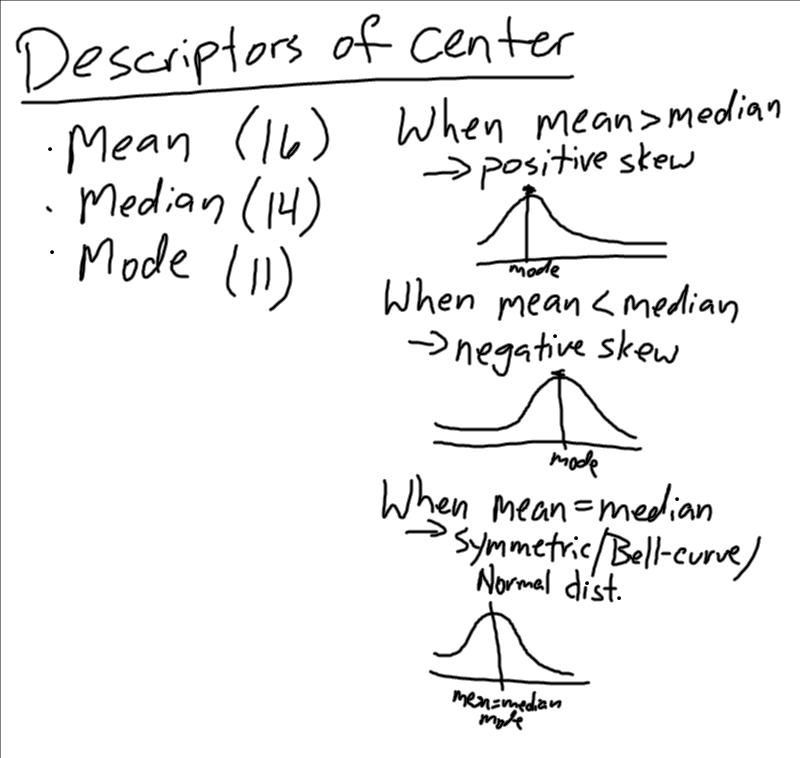 Descriptors of center
· Mean (16)
· Median (14)
· Mode (11)
When mean > median
→ positive skew
mode
When mean < median
→ negative skew
mode
When mean = median
→ Symmetric/Bell-curve/
Normal dist.
mean=median
mode